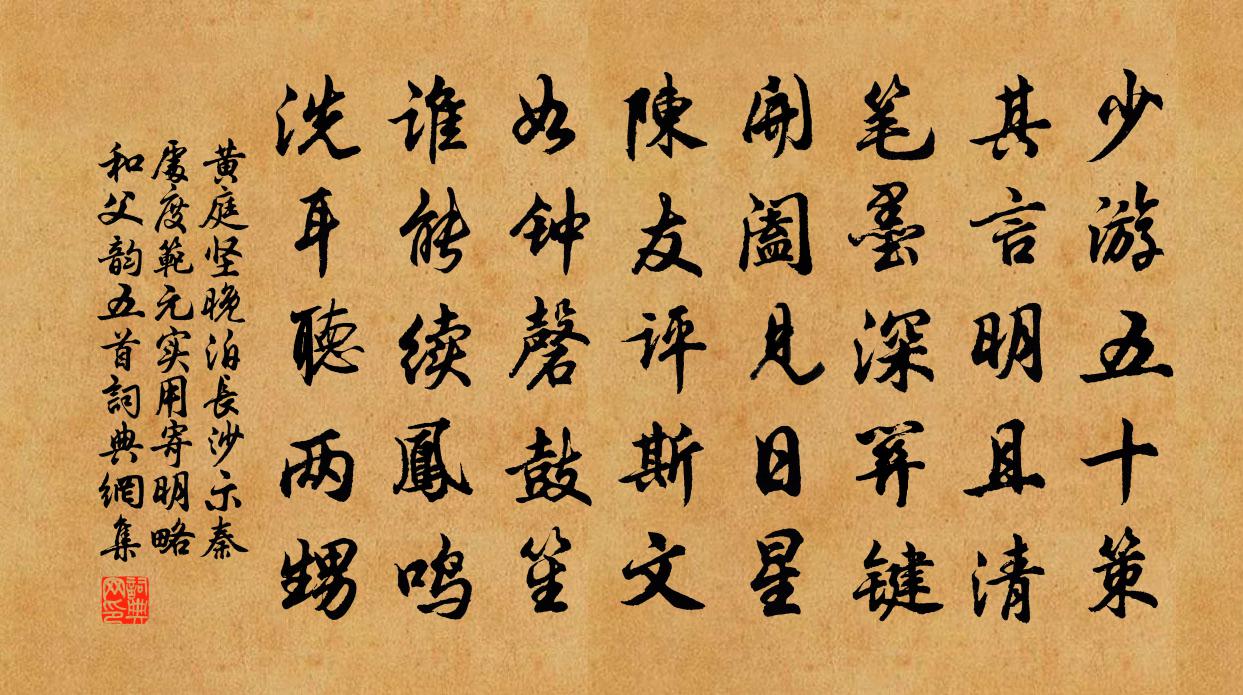 少游五十策
其言明且清
笔墨深关键
開闔见日星
陳友评斯文
如钟磬鼓笙
谁能续鳳鸣
洗耳聽两甥
黄庭坚晚泊長沙示秦
處度範元实用寄明略
和父韵五首詞典網集
詞典网印